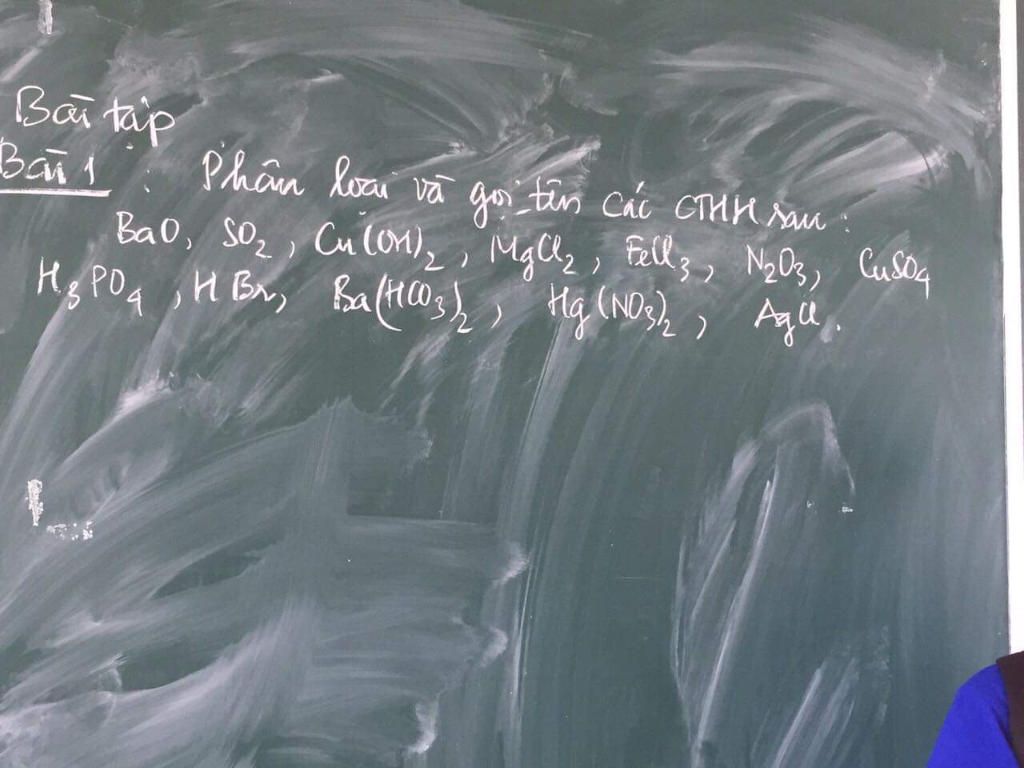 Bài tập
Bài 1 : Phân loại và gọi tên các CTHH sau :
BaO, SO₂, Cu(OH)₂, MgCl₂, FeCl₃, N₂O₃, CuSO₄
H₃PO₄, HBr, Ba(HCO₃)₂, Hg(NO₃)₂, AgCl.